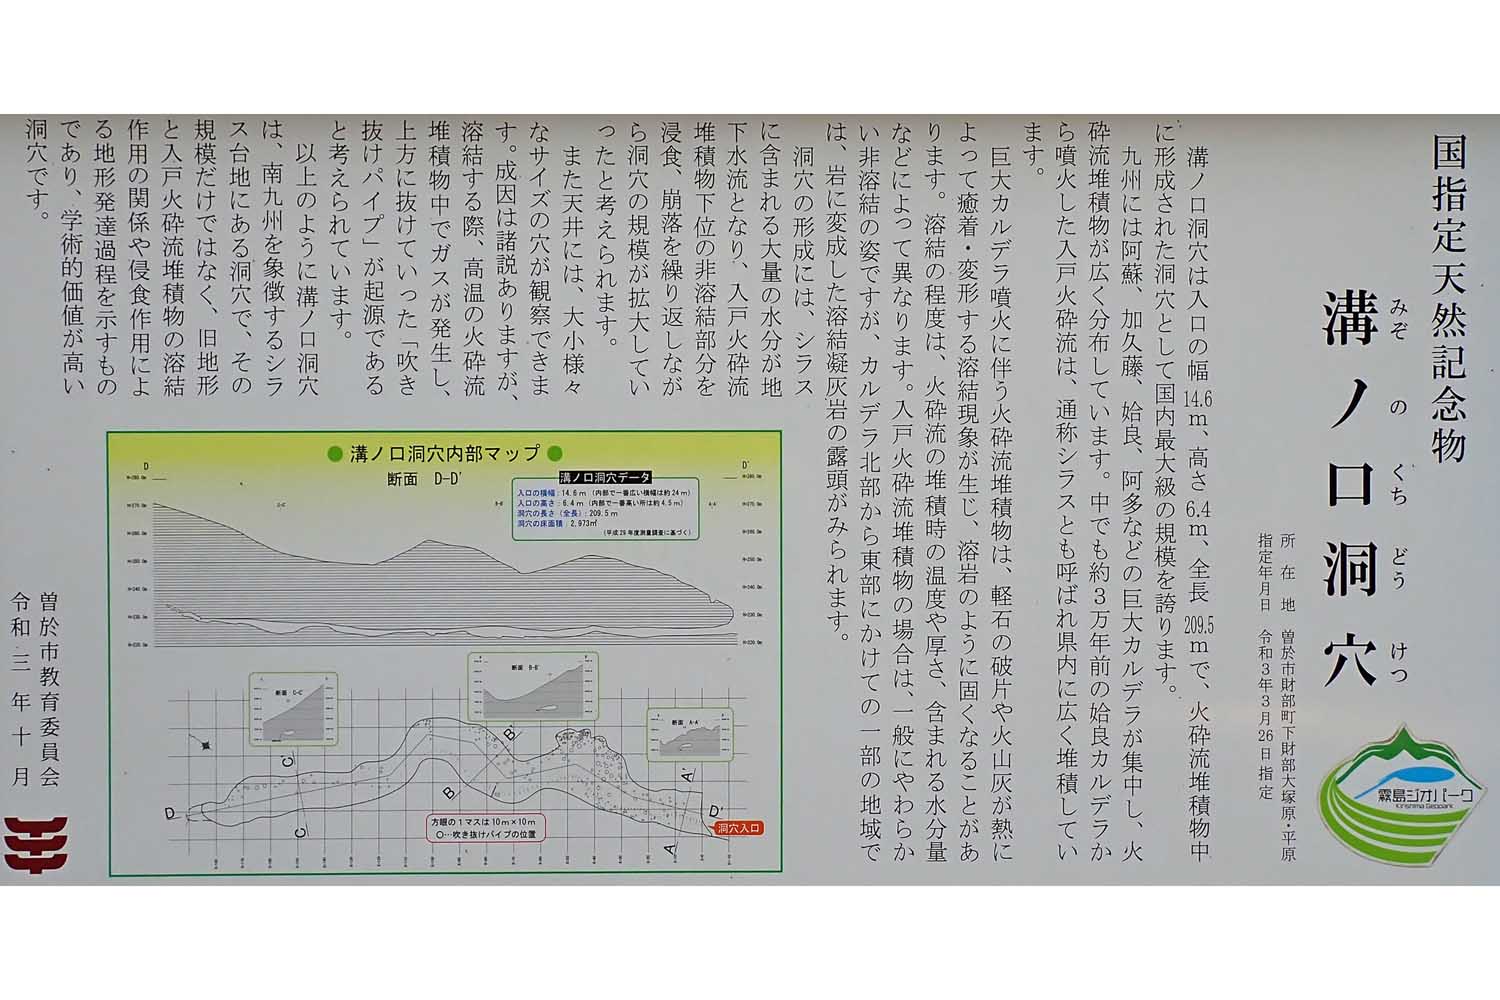 国指定天然記念物
みぞ の くち どう けつ
溝ノ口洞穴
所在地 曽於市財部町下財部大塚原・平原
指定年月日 令和3年3月26日指定
霧島ジオパーク
Kirishima Geopark
溝ノ口洞穴は入口の幅14.6m、高さ6.4m、全長209.5mで、火砕流堆積物中
に形成された洞穴として国内最大級の規模を誇ります。
九州には阿蘇、加久藤、姶良、阿多などの巨大カルデラが集中し、火
砕流堆積物が広く分布しています。中でも約3万年前の姶良カルデラか
ら噴火した入戸火砕流は、通称シラスとも呼ばれ県内に広く堆積してい
ます。
巨大カルデラ噴火に伴う火砕流堆積物は、軽石の破片や火山灰が熱に
よって癒着・変形する溶結現象が生じ、溶岩のように固くなることがあ
ります。溶結の程度は、火砕流の堆積時の温度や厚さ、含まれる水分量
などによって異なります。入戸火砕流堆積物の場合は、一般にやわらか
い非溶結の姿ですが、カルデラ北部から東部にかけての一部の地域で
は、岩に変成した溶結凝灰岩の露頭がみられます。
洞穴の形成には、シラス
に含まれる大量の水分が地
下水流となり、入戸火砕流
堆積物下位の非溶結部分を
浸食、崩落を繰り返しなが
ら洞穴の規模が拡大してい
ったと考えられます。
また天井には、大小様々
なサイズの穴が観察できま
す。成因は諸説ありますが、
溶結する際、高温の火砕流
堆積物中でガスが発生し、
上方に抜けていった「吹き
抜けパイプ」が起源である
と考えられています。
以上のように溝ノ口洞穴
は、南九州を象徴するシラ
ス台地にある洞穴で、その
規模だけではなく、旧地形
と入戸火砕流堆積物の溶結
作用の関係や侵食作用によ
る地形発達過程を示すもの
であり、学術的価値が高い
洞穴です。
曽於市教育委員会
令和三年十月
●溝ノ口洞穴内部マップ●
断面 D-D'
D
D'
溝ノ口洞穴データ
入口の横幅：14.6m（内部で一番広い横幅は約24m）
入口の高さ：6.4m（内部で一番高い所は約4.5m）
洞穴の長さ（全長）：209.5m
洞穴の床面積：2,973㎡
（平成29年度測量調査に基づく）
断面 C-C'
断面 B-B'
断面 A-A'
C'
B'
A'
D
D'
C
B
A
洞穴入口
方眼の1マスは10m×10m
○…吹き抜けパイプの位置